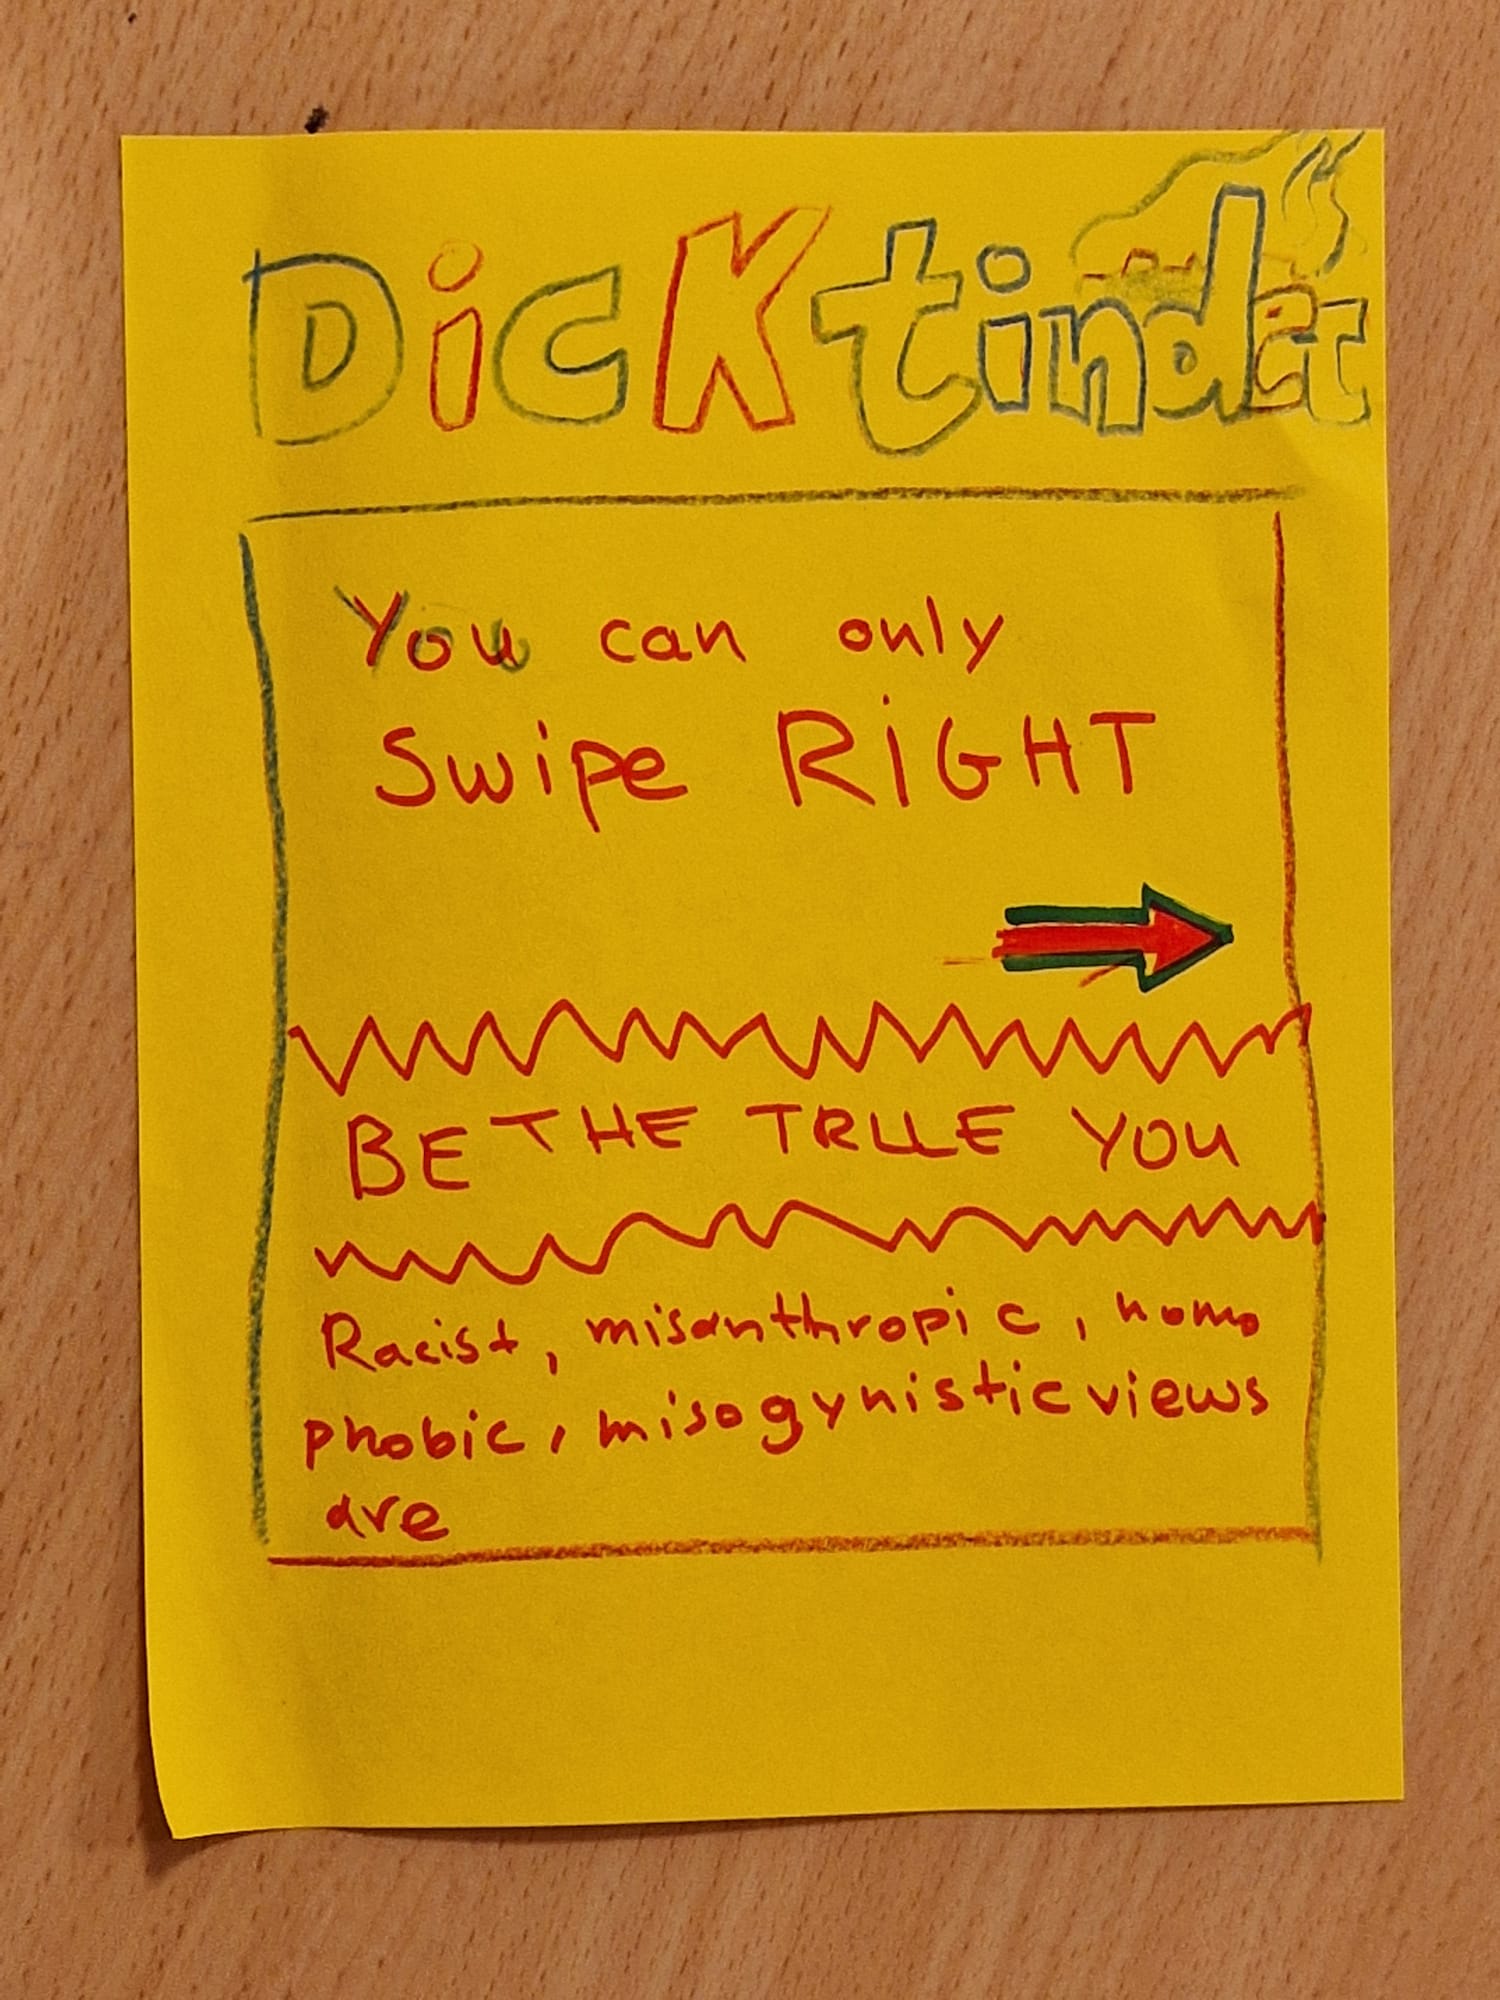 Dick tinder
You can only
Swipe RiGHT
BE THE TRUE YOU
Racist, misanthropic, homo
phobic, misogynistic views
are